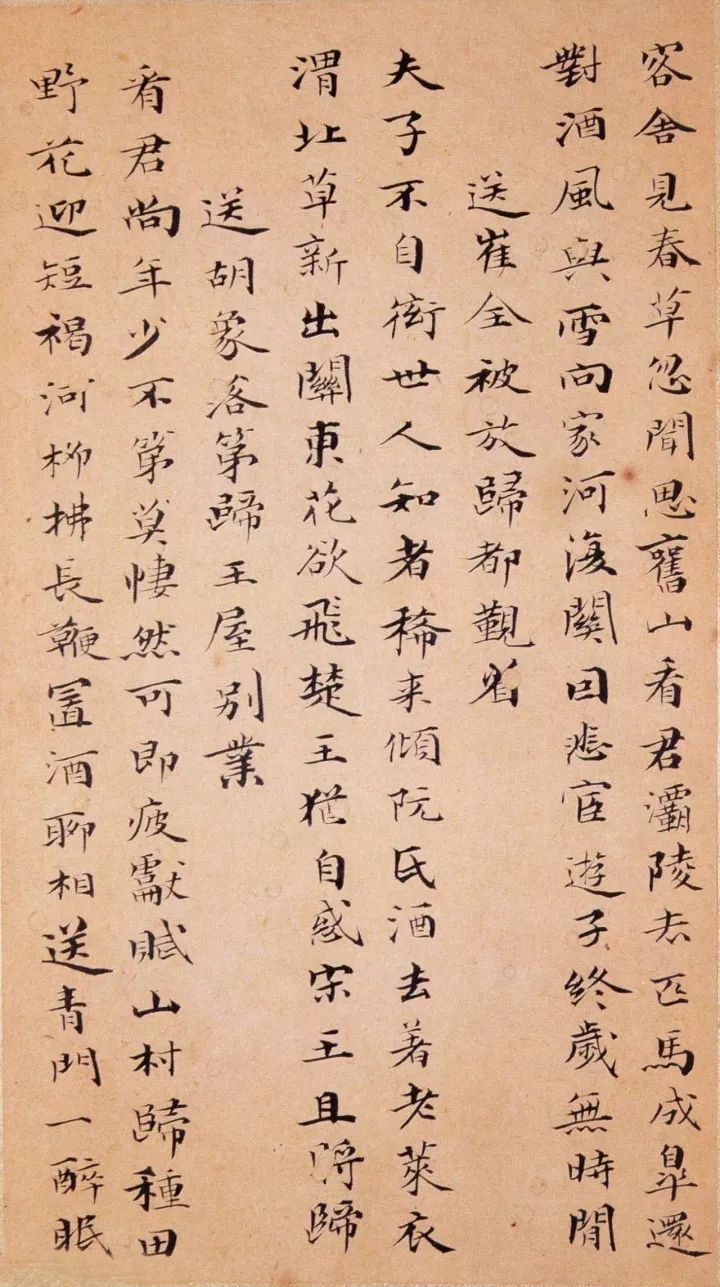 客舍見春草忽聞思舊山看君灞陵去匹馬成皐還
對酒風與雪向家河復關因悲宦遊子終歲無時閒
送崔全被放歸都覲省
夫子不自衒世人知者稀来傾阮氏酒去著老萊衣
渭北草新出關東花欲飛楚王猶自惑宋玉且將歸
送胡象落第歸王屋別業
看君尚年少不第莫悽然可即疲獻賦山村歸種田
野花迎短褐河柳拂長鞭置酒聊相送青門一醉眠